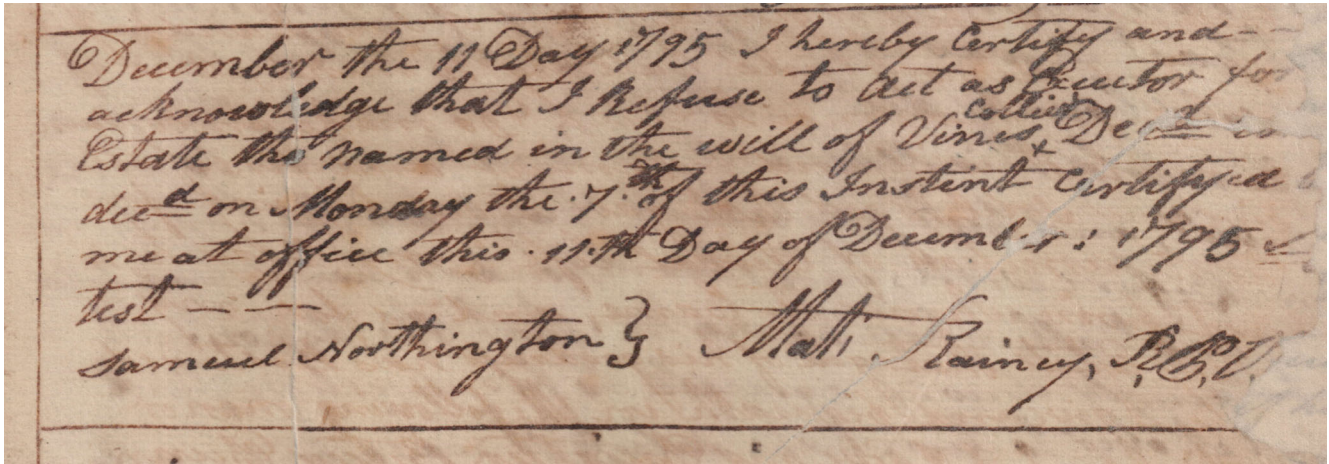 December the 11 Day 1795 I hereby Certify and - -
acknowledge that I Refuse to act as Executor for
Estate tho named in the will of Vines Collier Decd
decd on Monday the .7.th of this Instent Certifyed
me at office this .11.th Day of December : 1795
test — —
Samuel Northington } Mat. Rainey, R,P,